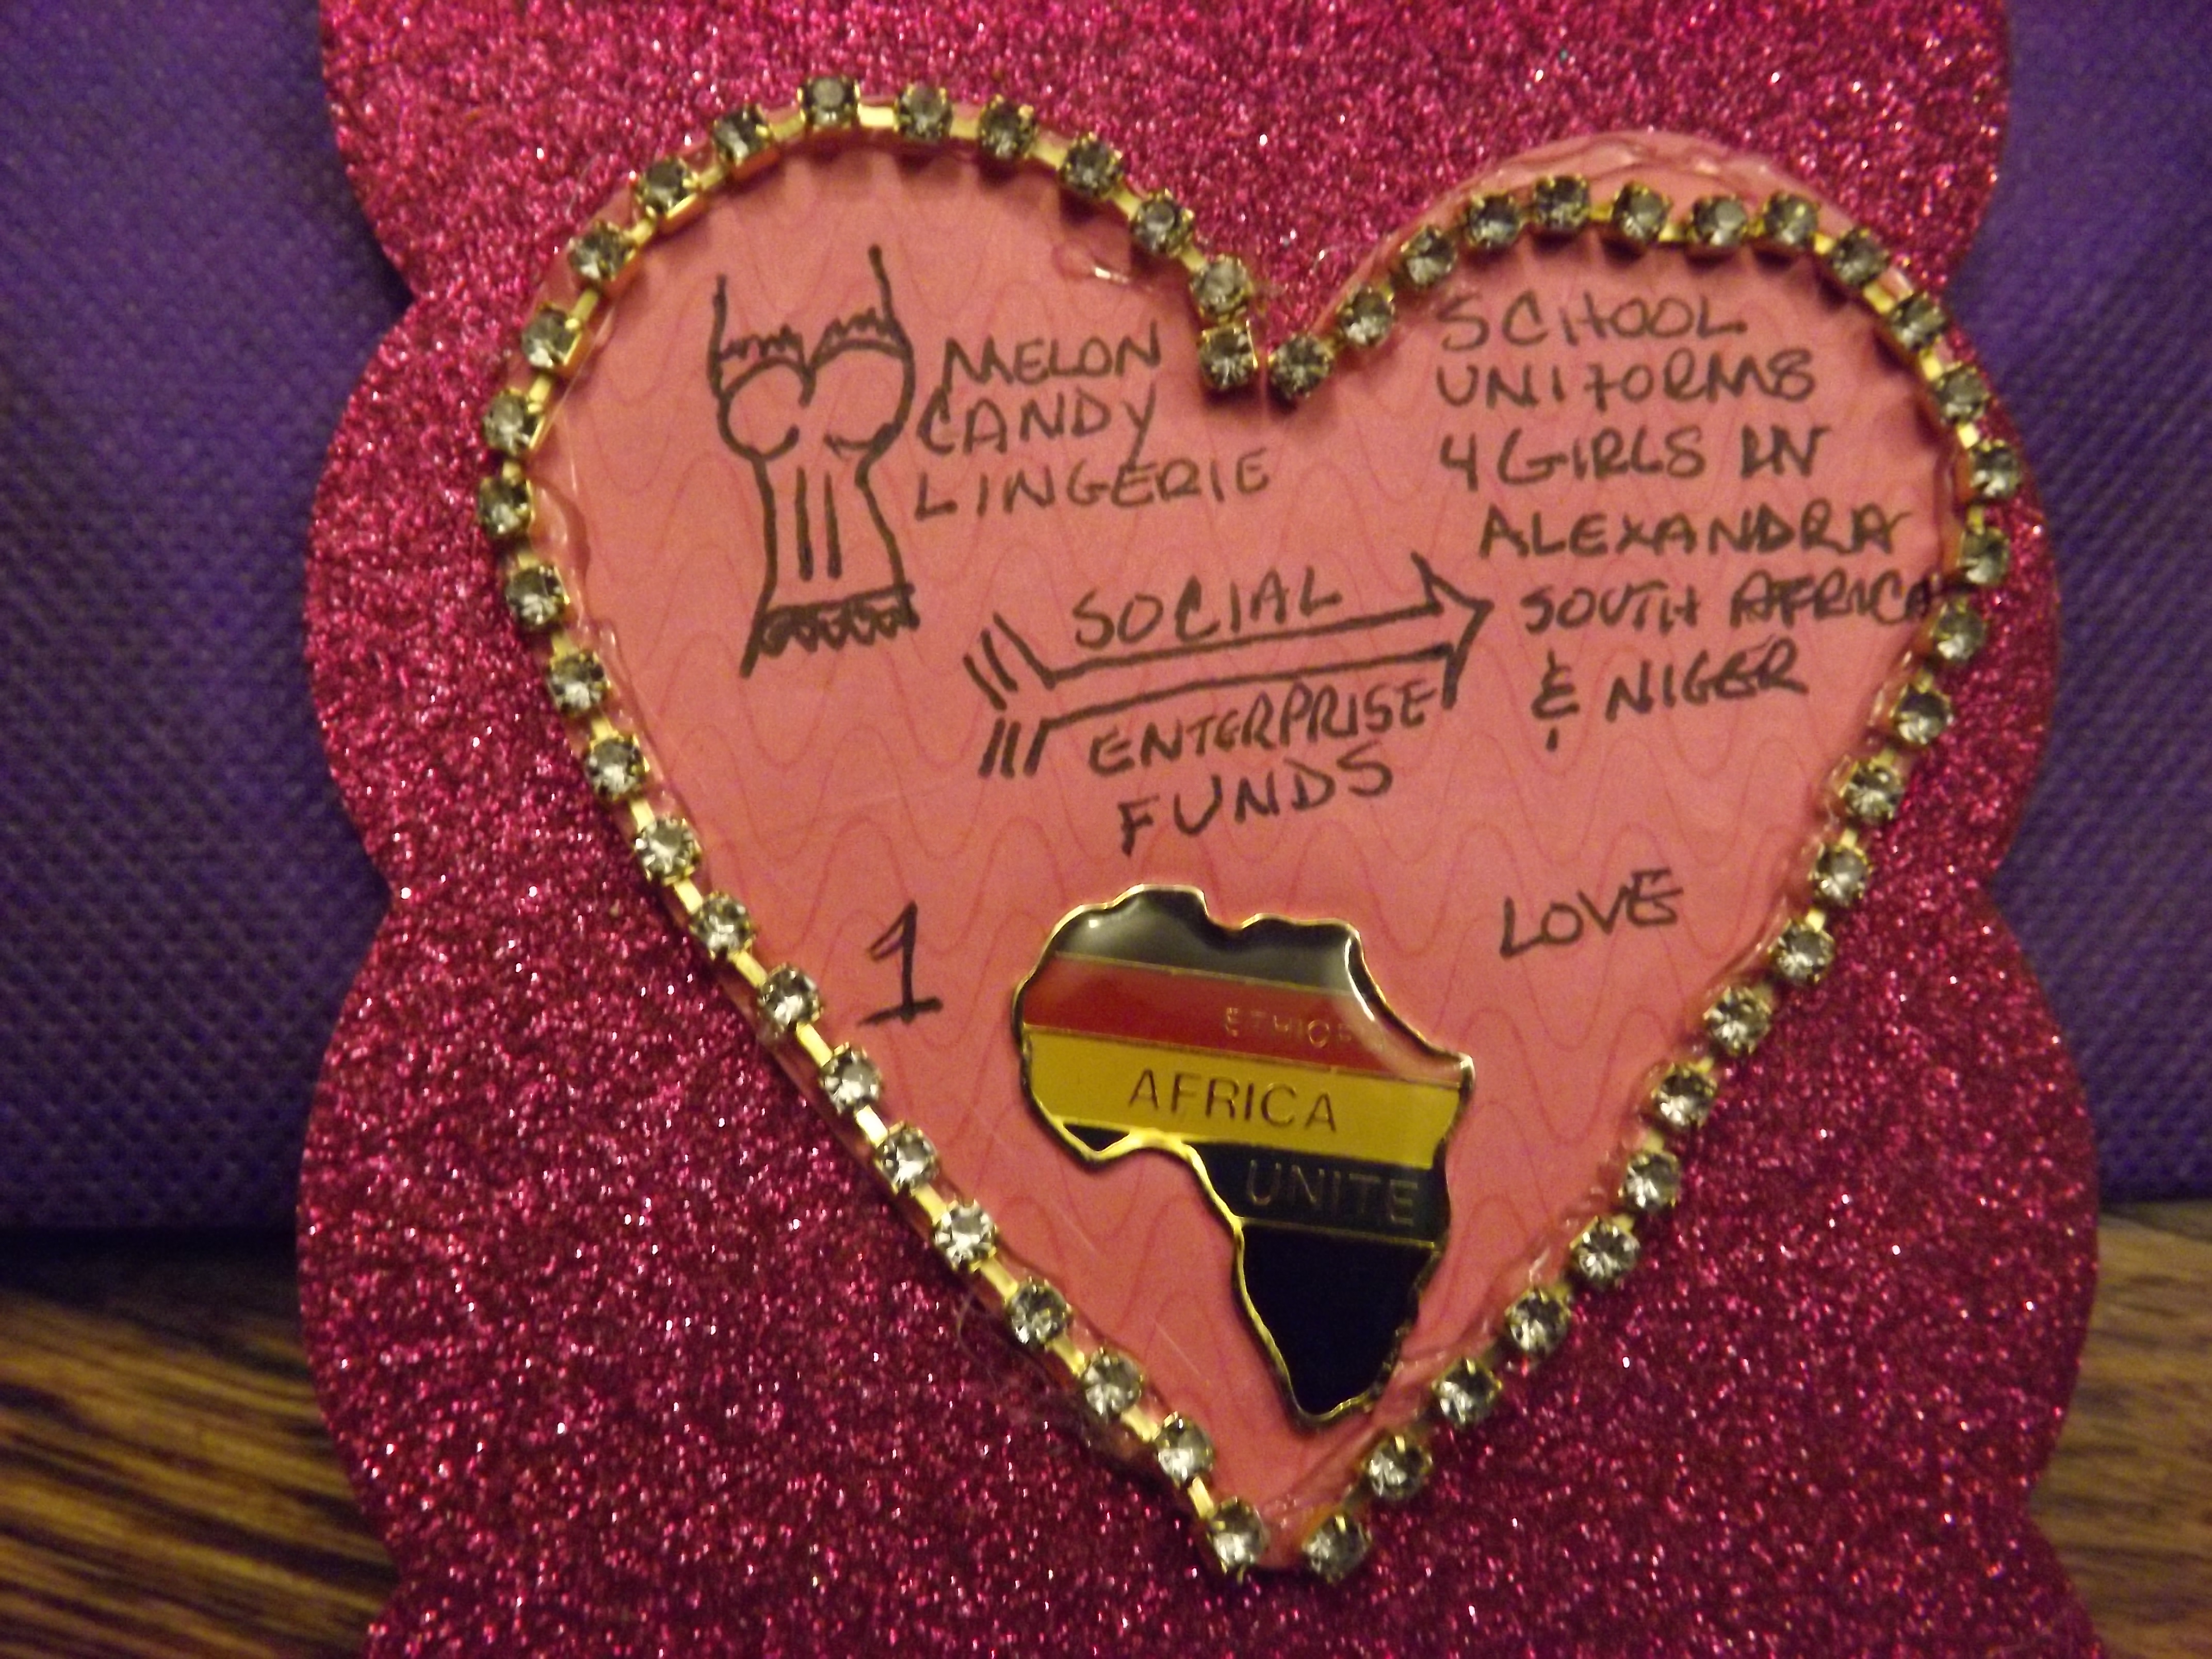 MELON
CANDY
LINGERIE
SCHOOL
UNIFORMS
4 GIRLS IN
ALEXANDRA
SOUTH AFRICA
& NIGER
SOCIAL
ENTERPRISE
FUNDS
1
LOVE
AFRICA
UNITE